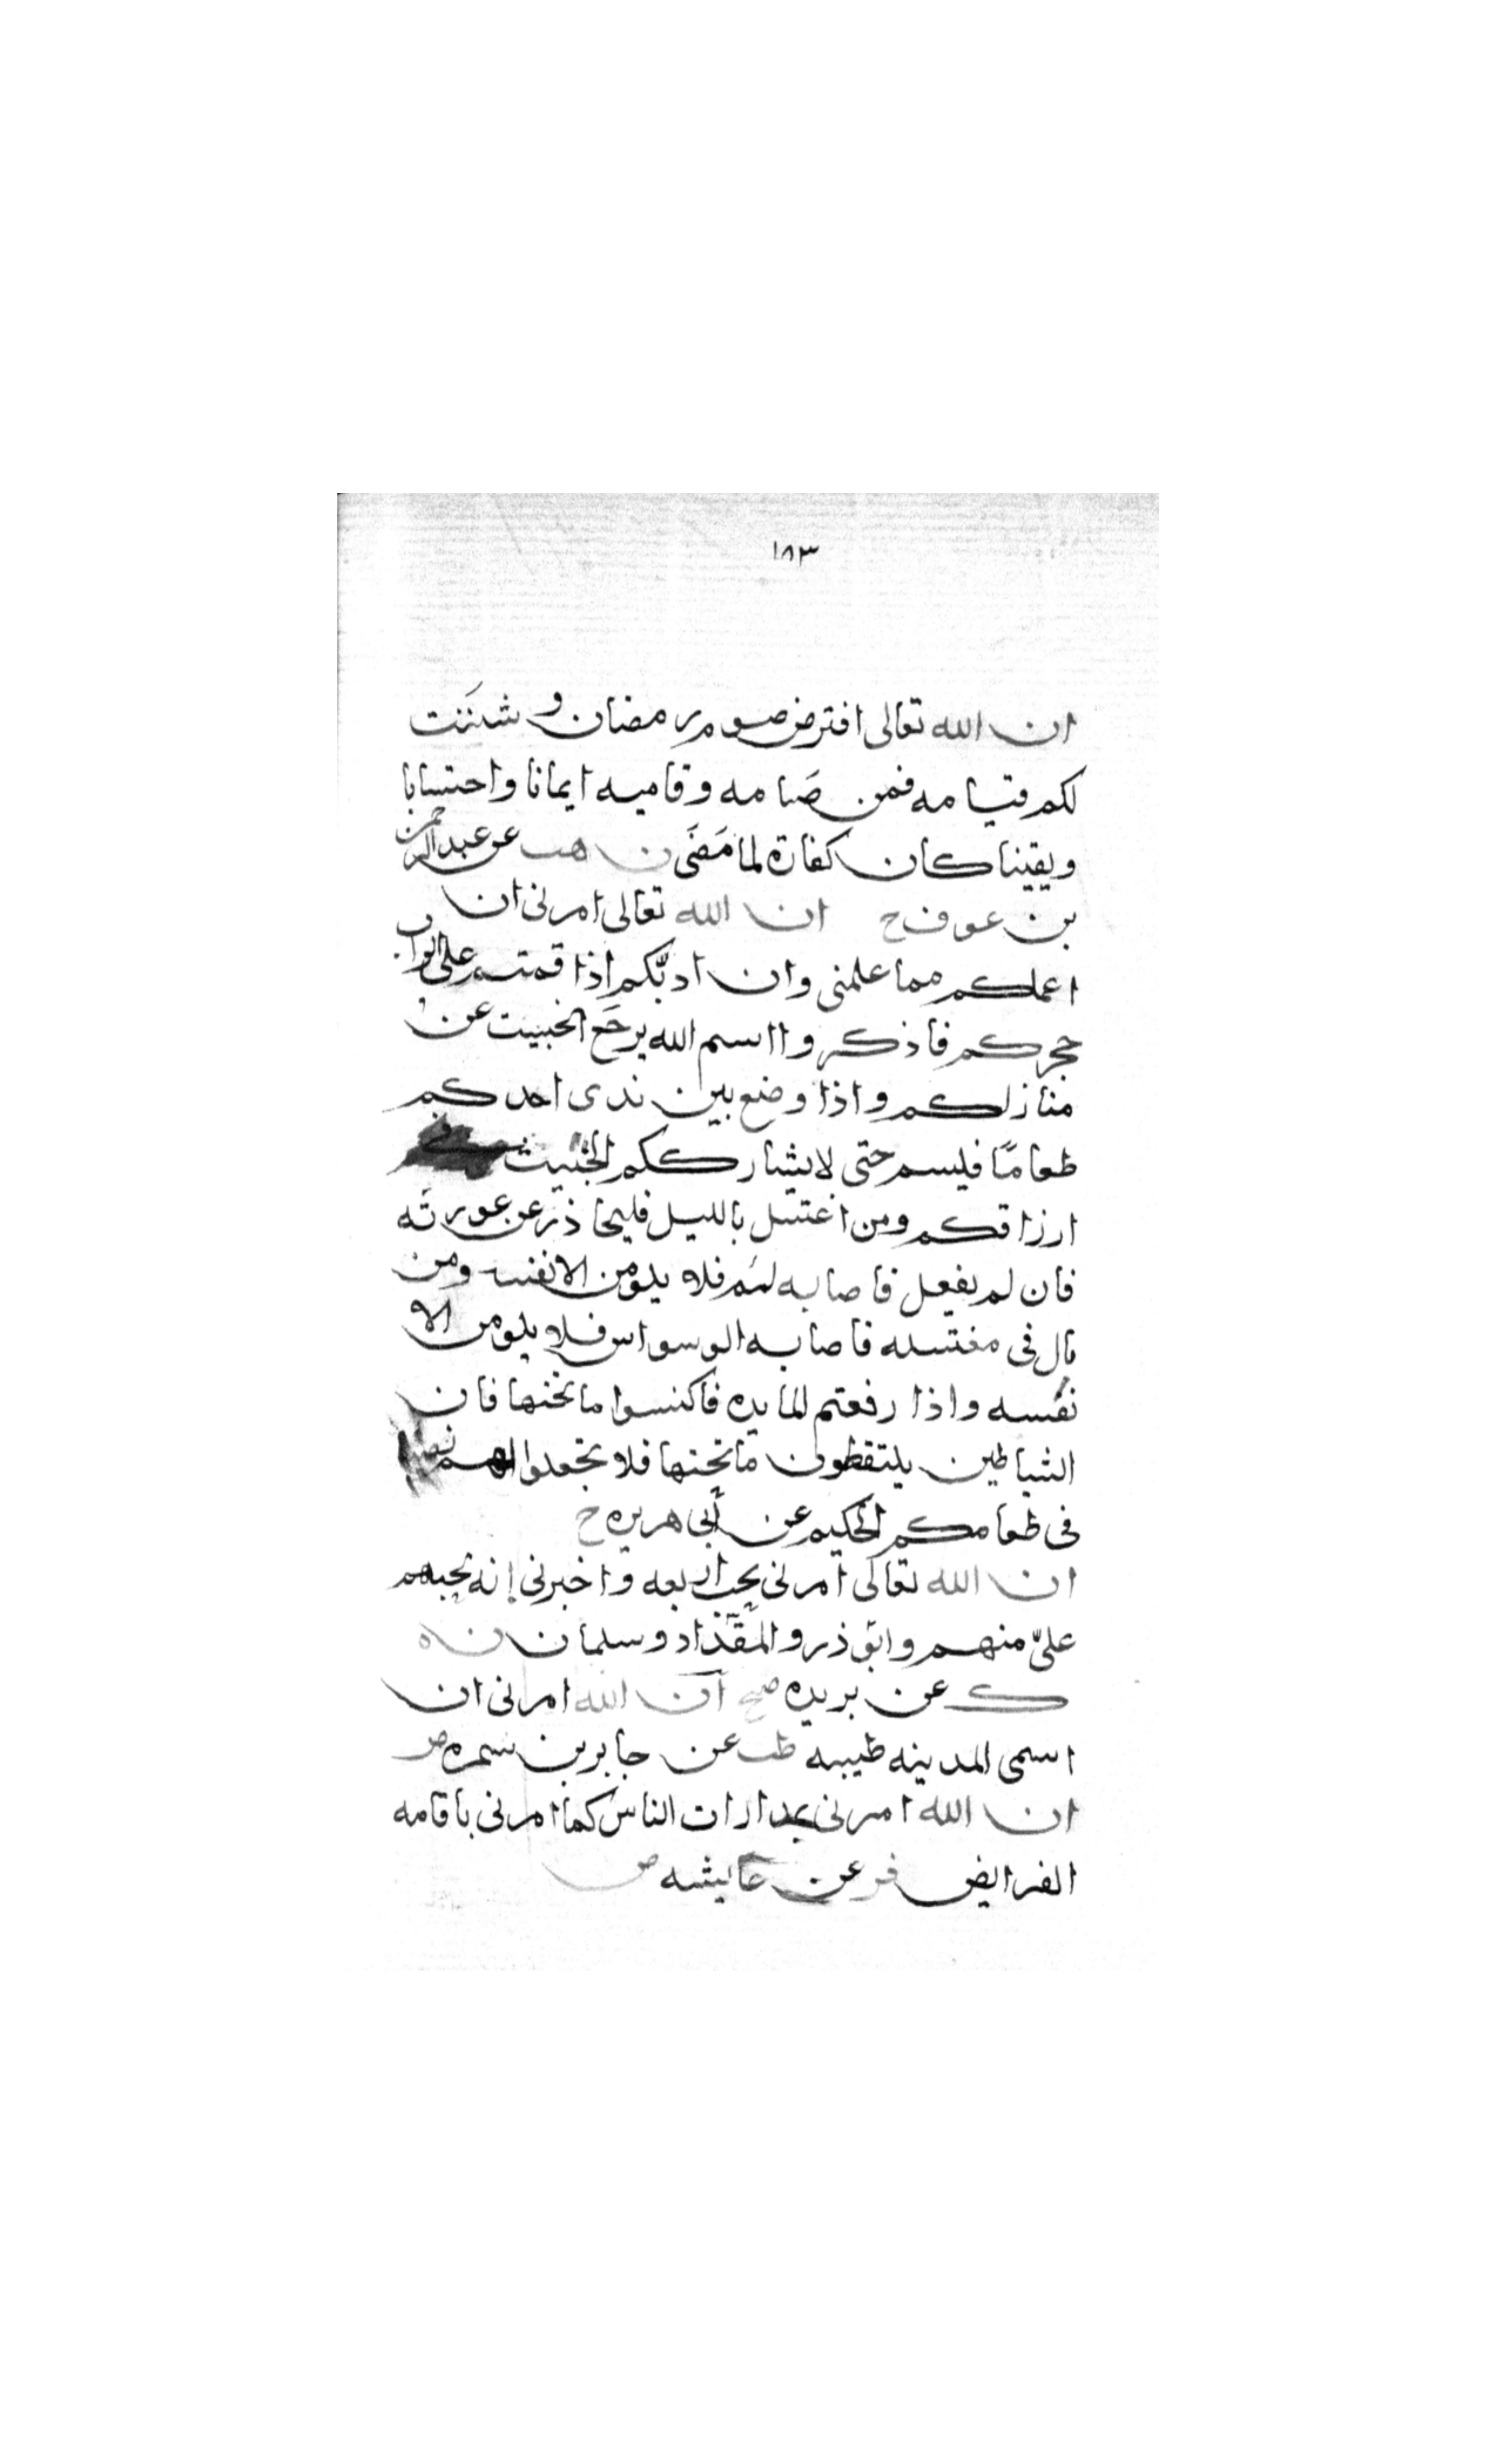 ١٨٣
ان الله تعالى افترض صوم رمضان و سننت
لكم قيامه فمن صَامه وقاميه ايمانا واحتسابا
ويقينا كان كفارة لما مَضَى ن هب عن عبد الرحمن
بن عوف ح ان الله تعالى امرنى ان
اعلمكم مما علمنى وان ادبّكم اذا قمتم على ابواب
حجركم فاذكروا اسم الله يرجَع الخبيث عن
منازلكم واذا وضع بين يدى احدكم
طعامًا فليسم حتى لا يشارككم الخبيث فى
ارزاقكم ومن اغتسل بالليل فليحاذر عن عورتَه
فان لم يفعل فاصابه لمَم فلا يلومن الا نفسه ومن
بال فى مغتسله فاصابه الوسواس فلا يلومن الا
نفسه واذا رفعتم المايده فاكنسوا ما تحتها فان
الشياطين يلتقطون ما تحتها فلا تجعلوا لهم نصيبا
فى طعامكم الحكيم عن أبى هريره ح
ان الله تعالى امرنى بحب اربعه واخبرنى إنه يحبهم
علىّ منهم وابو ذر والمقداد وسلمان ت ه
ك عن بريده صح ان الله امرنى ان
اسمى المدينه طيبه طب عن جابر بن سمره ض
ان الله امرنى بمدارات الناس كما امرنى باقامه
الفرايض فر عن عايشه ض